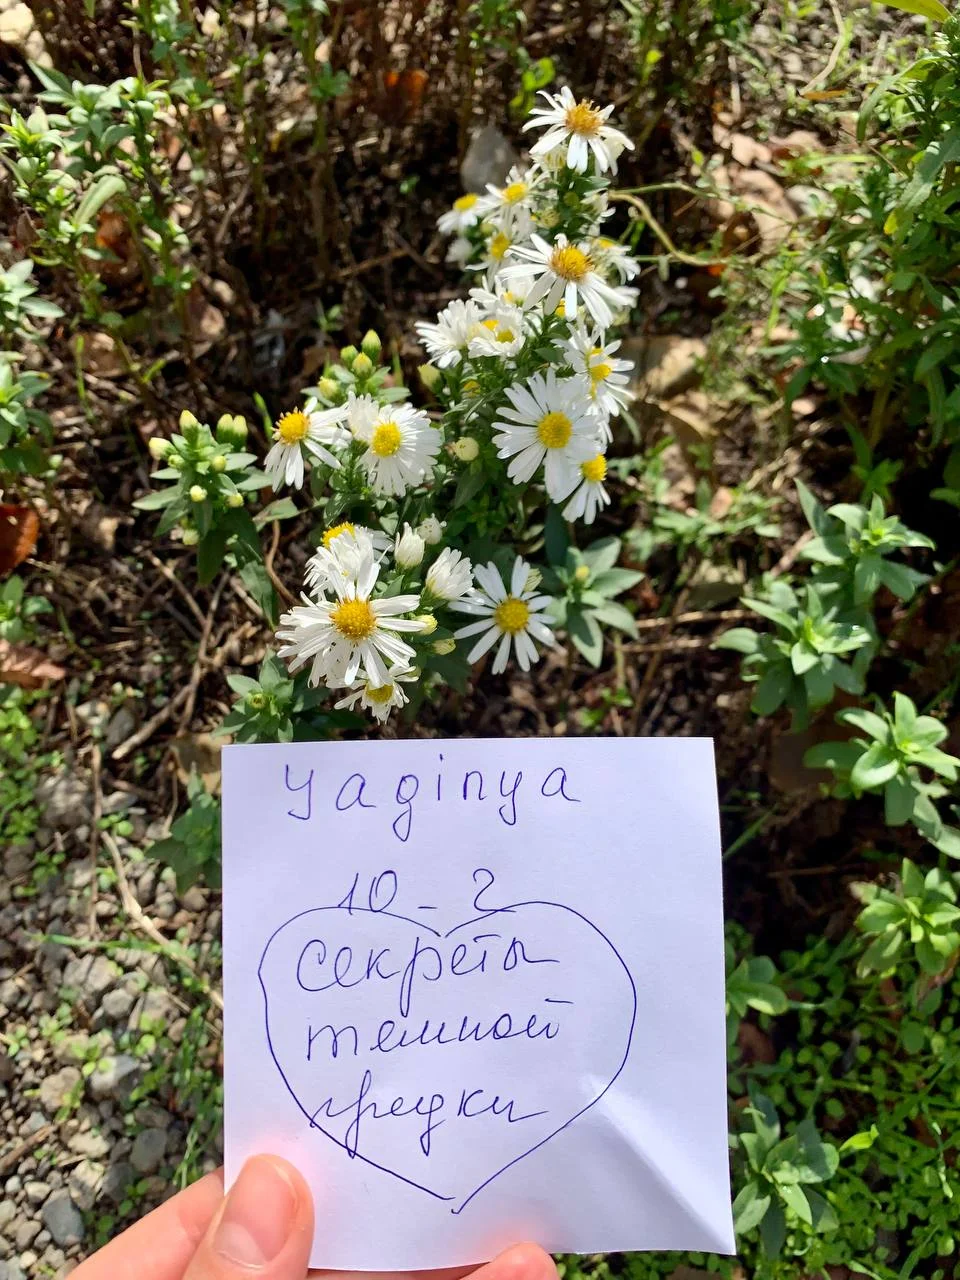 yaginya
10-2
Секреты
темной
грядки